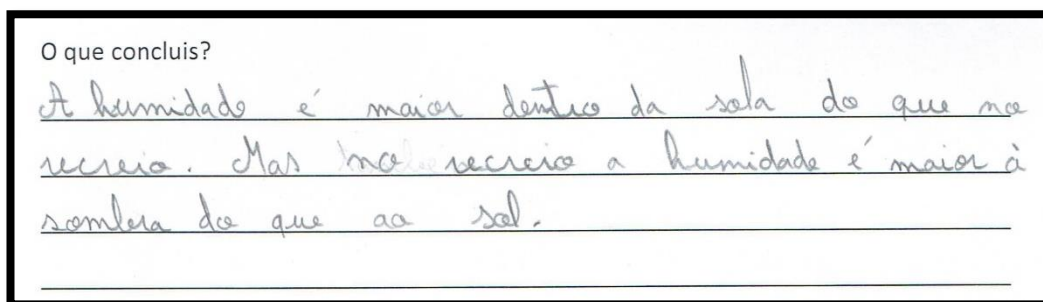 O que concluis?
A humidade é maior dentro da sala do que no
recreio. Mas no recreio a humidade é maior à
sombra do que ao sol.